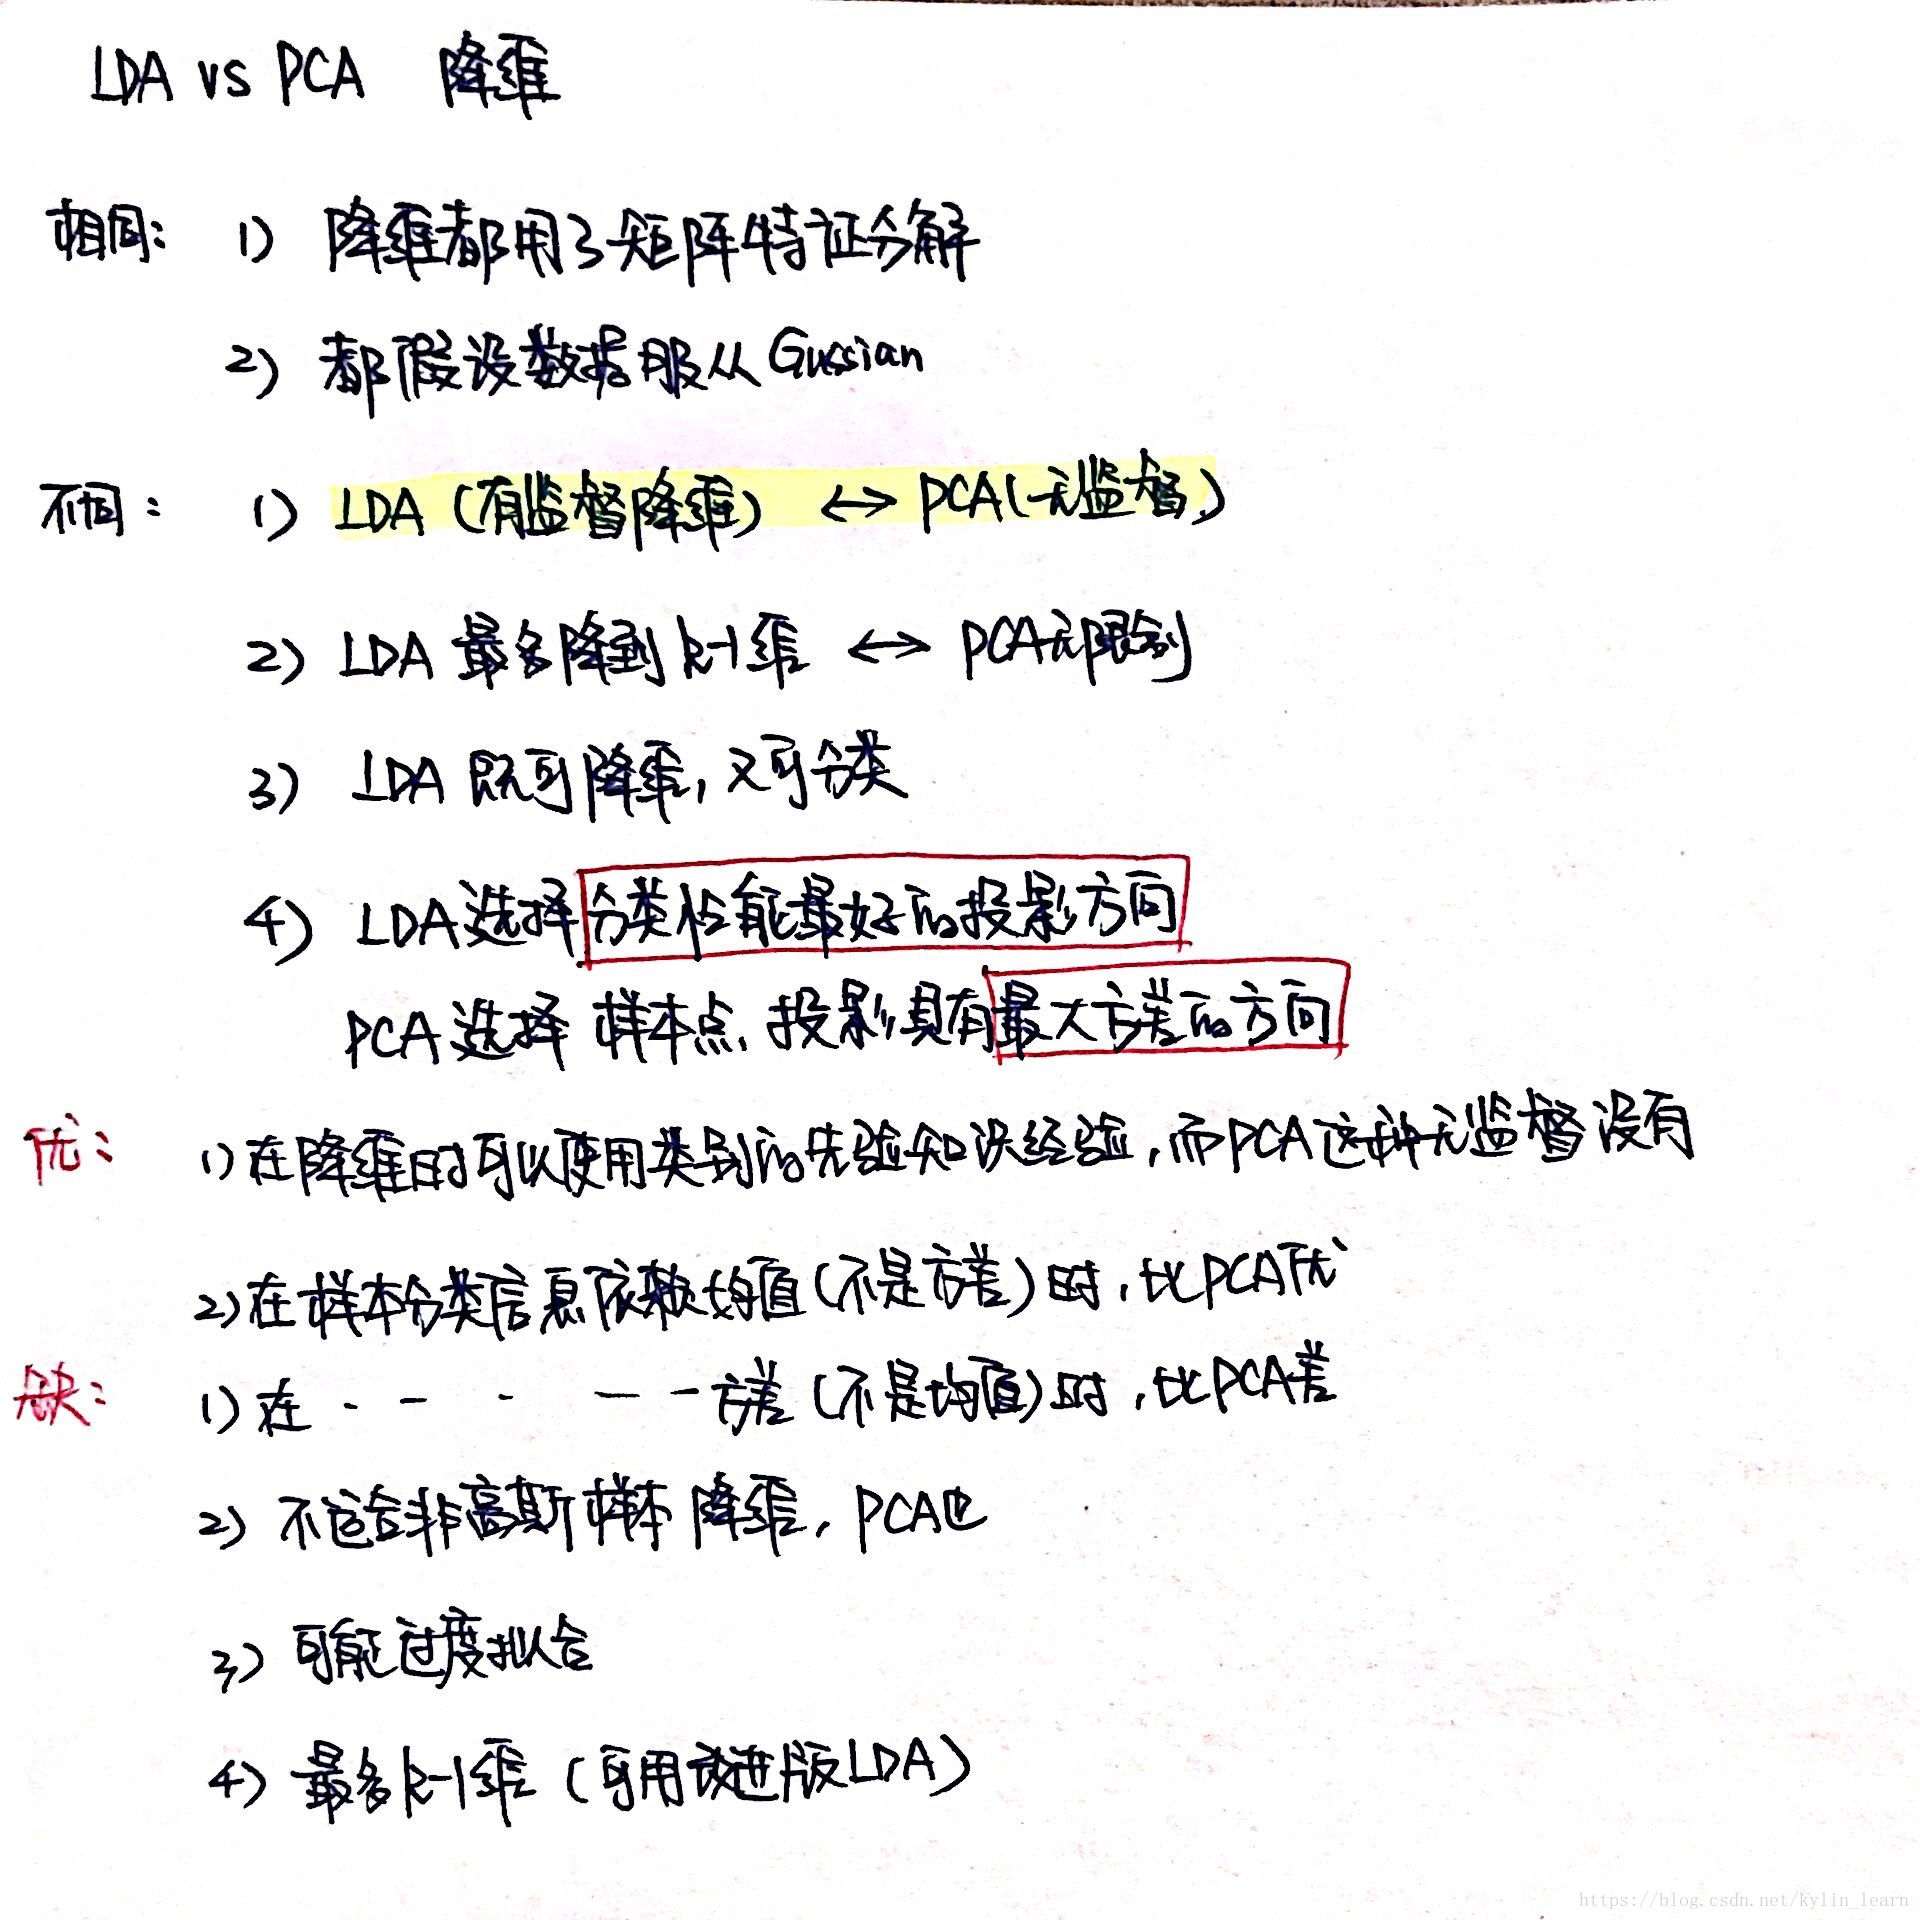 LDA vs PCA 降维
相同: 1) 降维都用了矩阵特证分解
2) 都假设数据服从 Gussian
不同: 1) LDA (有监督降维) ↔ PCA(无监督)
2) LDA 最多降到 k-1维 ↔ PCA无限制
3) LDA 既可降维, 又可分类
4) LDA选择分类性能最好的投影方向
PCA选择 样本点 投影具有最大方差的方向
优: 1) 在降维时可以使用类别的先验知识经验, 而PCA这种无监督没有
2) 在样本分类信息依赖均值(不是方差)时, 比PCA优
缺: 1) 在 - - - — - 方差 (不是均值)时, 比PCA差
2) 不适合非高斯样本 降维, PCA也
3) 可能过度拟合
4) 最多k-1维 (可用改进版LDA)
https://blog.csdn.net/kylin_learn